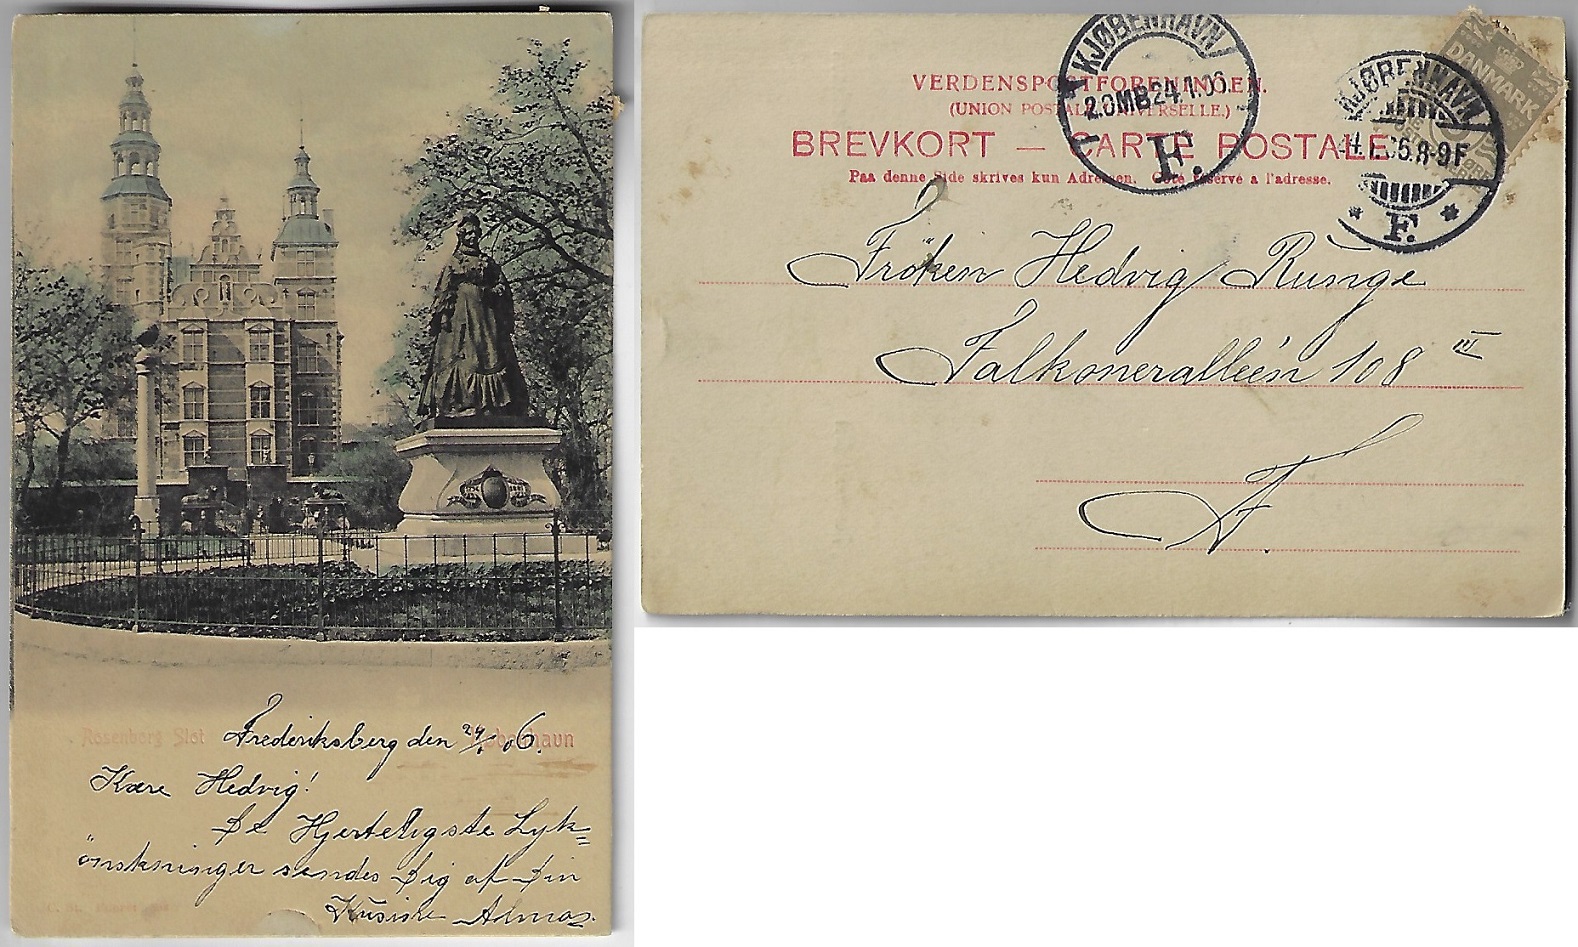 Rosenborg Slot København
Frederiksberg den 24/1 06.
Kære Hedvig!
De Hjerteligste Lyk=
önskninger sendes Dig af Din
Kusine Alma.
KJØBENHAVN
2.OMB 24.1.06.
F.
VERDENSPOSTFORENINGEN.
(UNION POSTALE UNIVERSELLE.)
BREVKORT — CARTE POSTALE
Paa denne Side skrives kun Adressen. Côté réservé a l'adresse.
DANMARK
KJØBENHAVN
24.1.06.8-9F
F.
Fröken Hedvig Runge
Falkoneralléen 108 III
F.